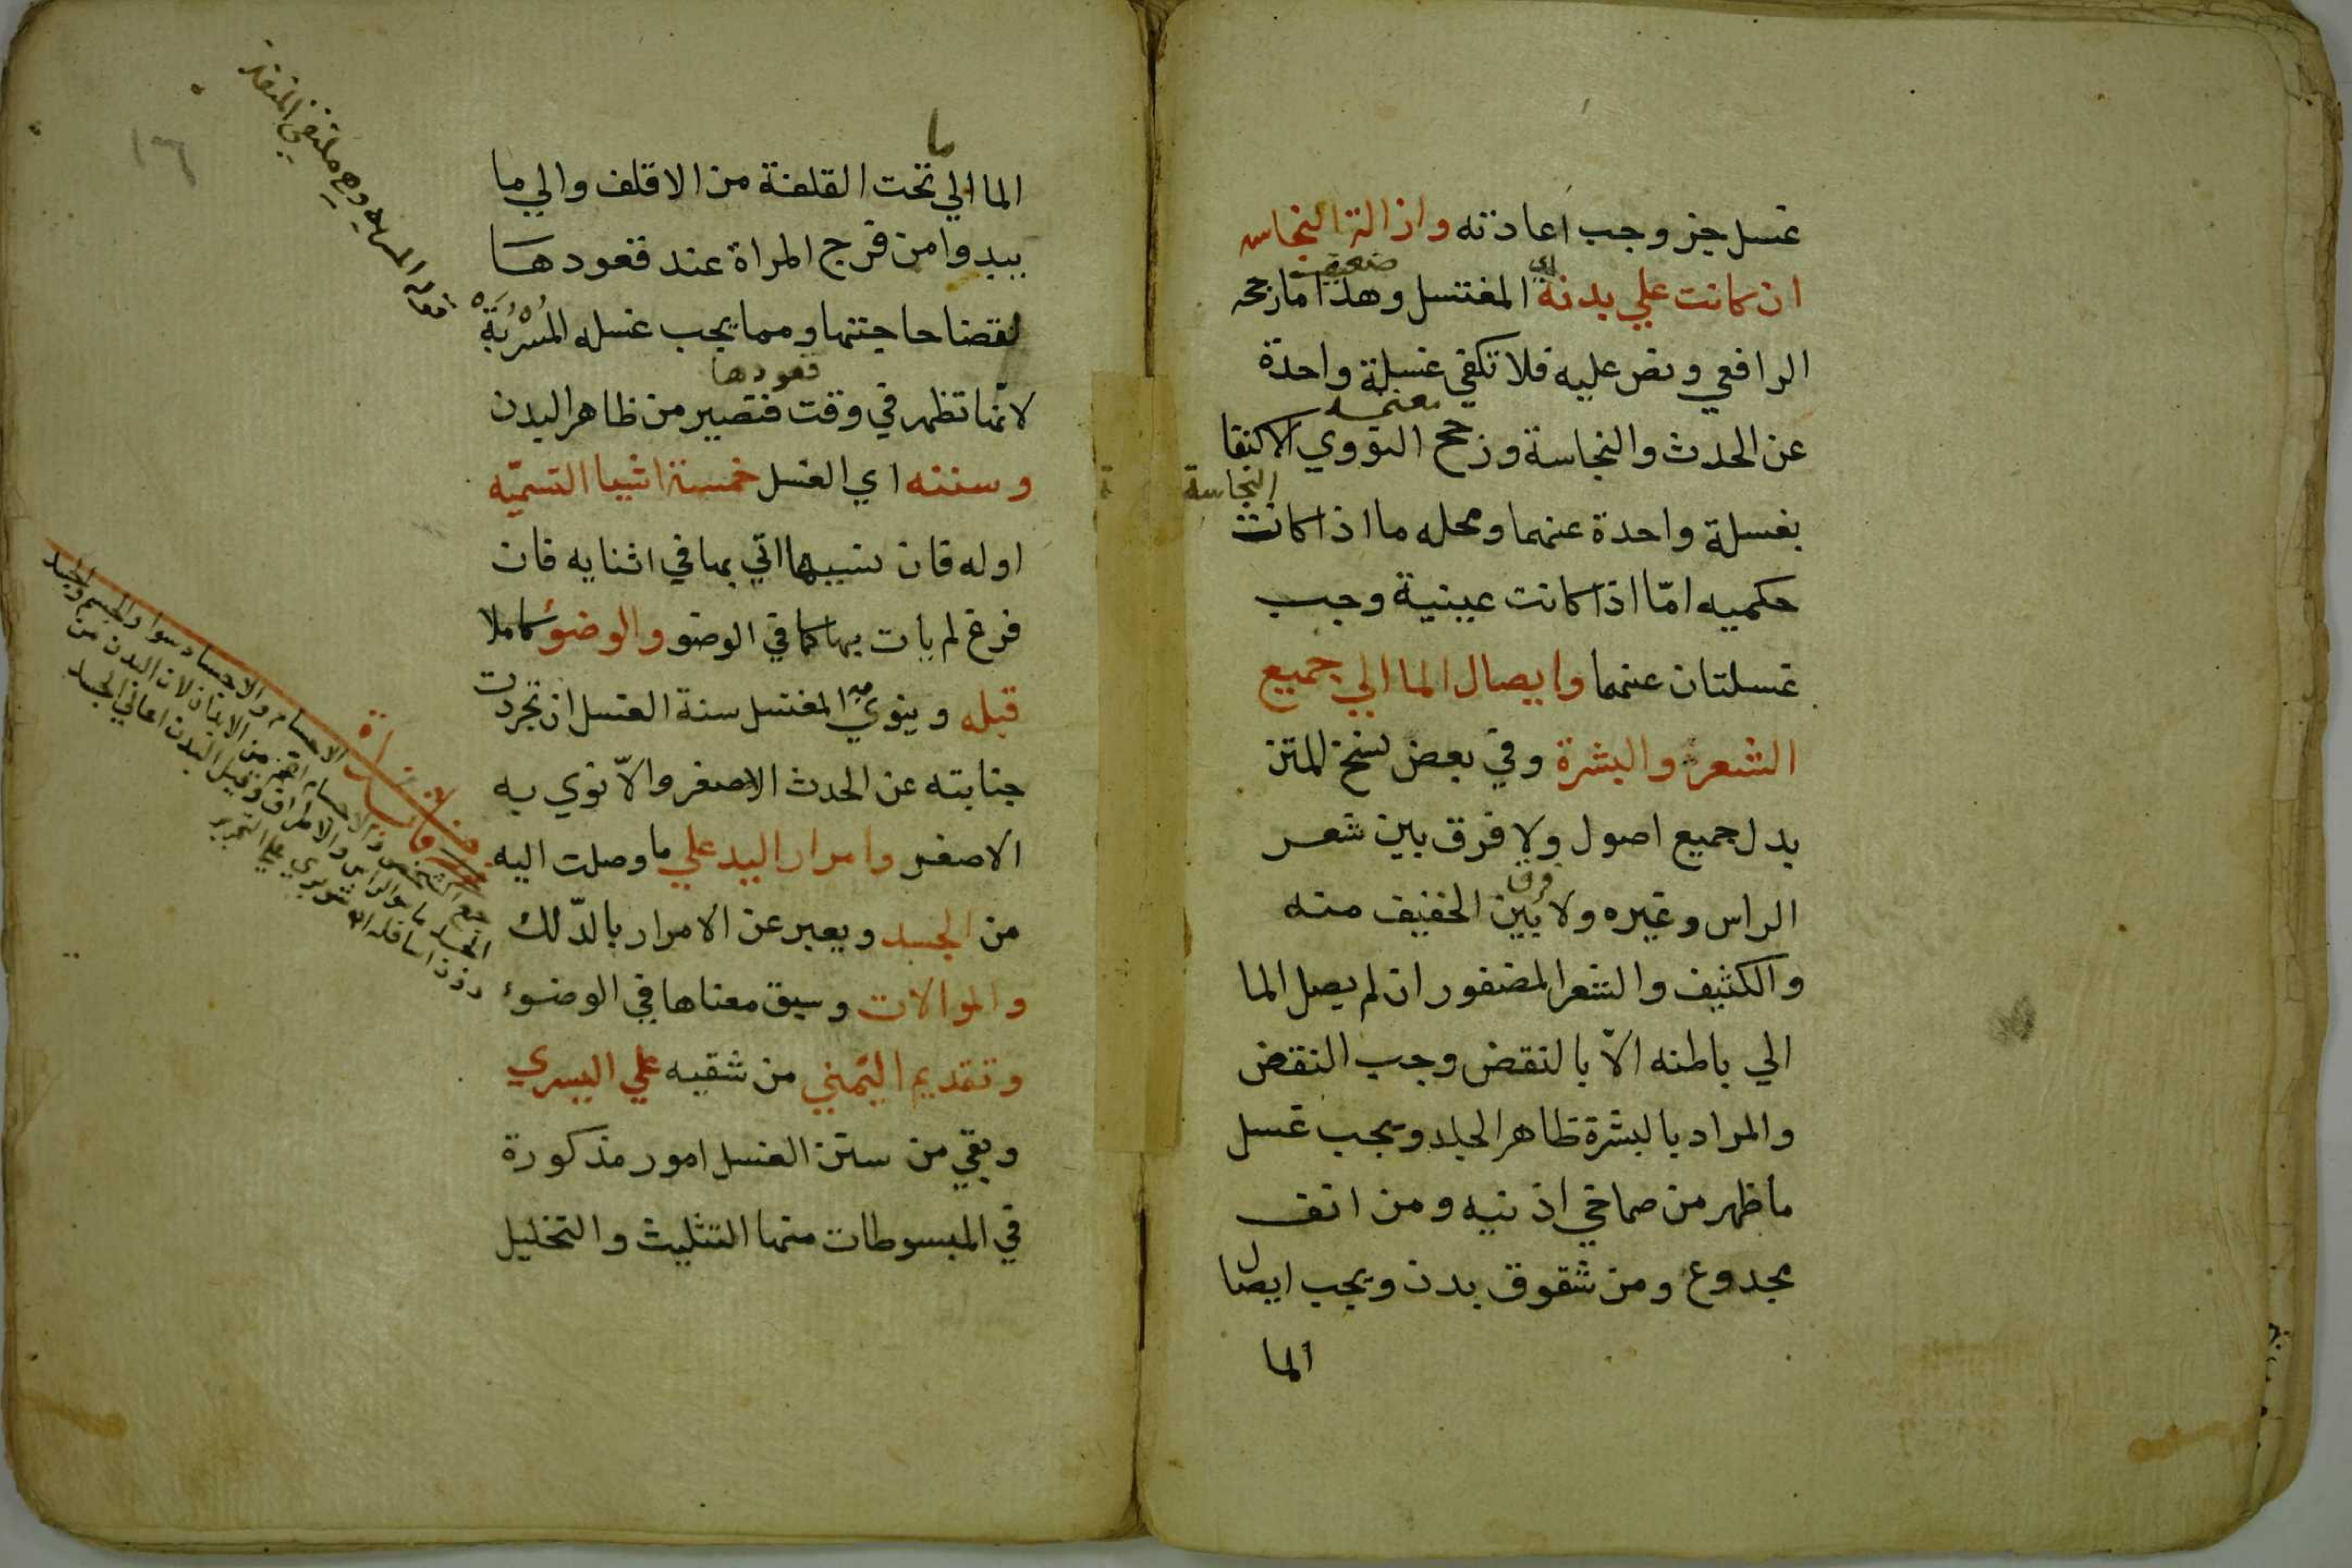 غسل جز وجب اعادته وازالة النجاسه
ان كانت علي بدنه اي المغتسل وهذا ما رجحه
ضعيف
الرافعي ونص عليه فلا تكفي غسلة واحدة
معتمد
عن الحدث والنجاسة ورجح النووي الاكتفا
النجاسة
بغسلة واحدة عنهما ومحله ما اذا كانت
حكميه امّا اذا كانت عينية وجب
غسلتان عنهما وايصال الما الي جميع
الشعر والبشرة وفي بعض نسخ المتن
بدل جميع اصول ولا فرق بين شعر
فرق
الراس وغيره ولا بين الخفيف منه
والكثيف والشعر المضفور ان لم يصل الما
الي باطنه الاّ بالنقض وجب النقض
والمراد بالبشرة ظاهر الجلد ويجب غسل
ما ظهر من صماخي اذنيه ومن انف
مجدوع ومن شقوق بدن ويجب ايصال
الما
١٦
ما
الما الي تحت القلفة من الاقلف والي ما
يبدوا من فرج المراة عند قعودها
لقضا حاجتها ومما يجب غسله المسربة
قعودها
لانها تظهر في وقت فتصير من ظاهر البدن
وسننه اي الغسل خمسة اشيا التسميّه
اوله فان نسيها اتي بها في اثنايه فان
فرغ لم يات بها كما في الوضو والوضوء كاملا
قبله وينوي به المغتسل سنة الغسل ان تجردت
جنابته عن الحدث الاصغر والاّ نوي به
الاصغر وامرار اليد علي ما وصلت اليه
من الجسد ويعبر عن الامرار بالدّلك
والموالات وسبق معناها في الوضوء
وتقديم اليمني من شقيه علي اليسري
وبقي من سنن الغسل امور مذكورة
في المبسوطات منها التثليث والتخليل
المسربه وهي ملتقي المنفذ
الاجسام والاجساد سوا والجسم والجسد
من الابدان لان البدن من
والاطراف وقيل البدن اعالي الجسد